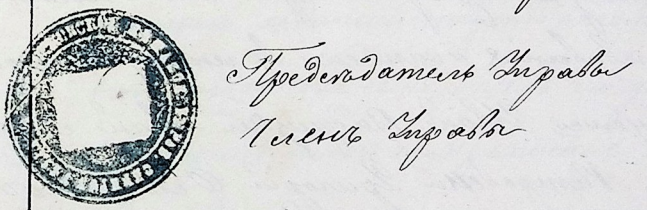 Председатель Управы
Членъ Управы